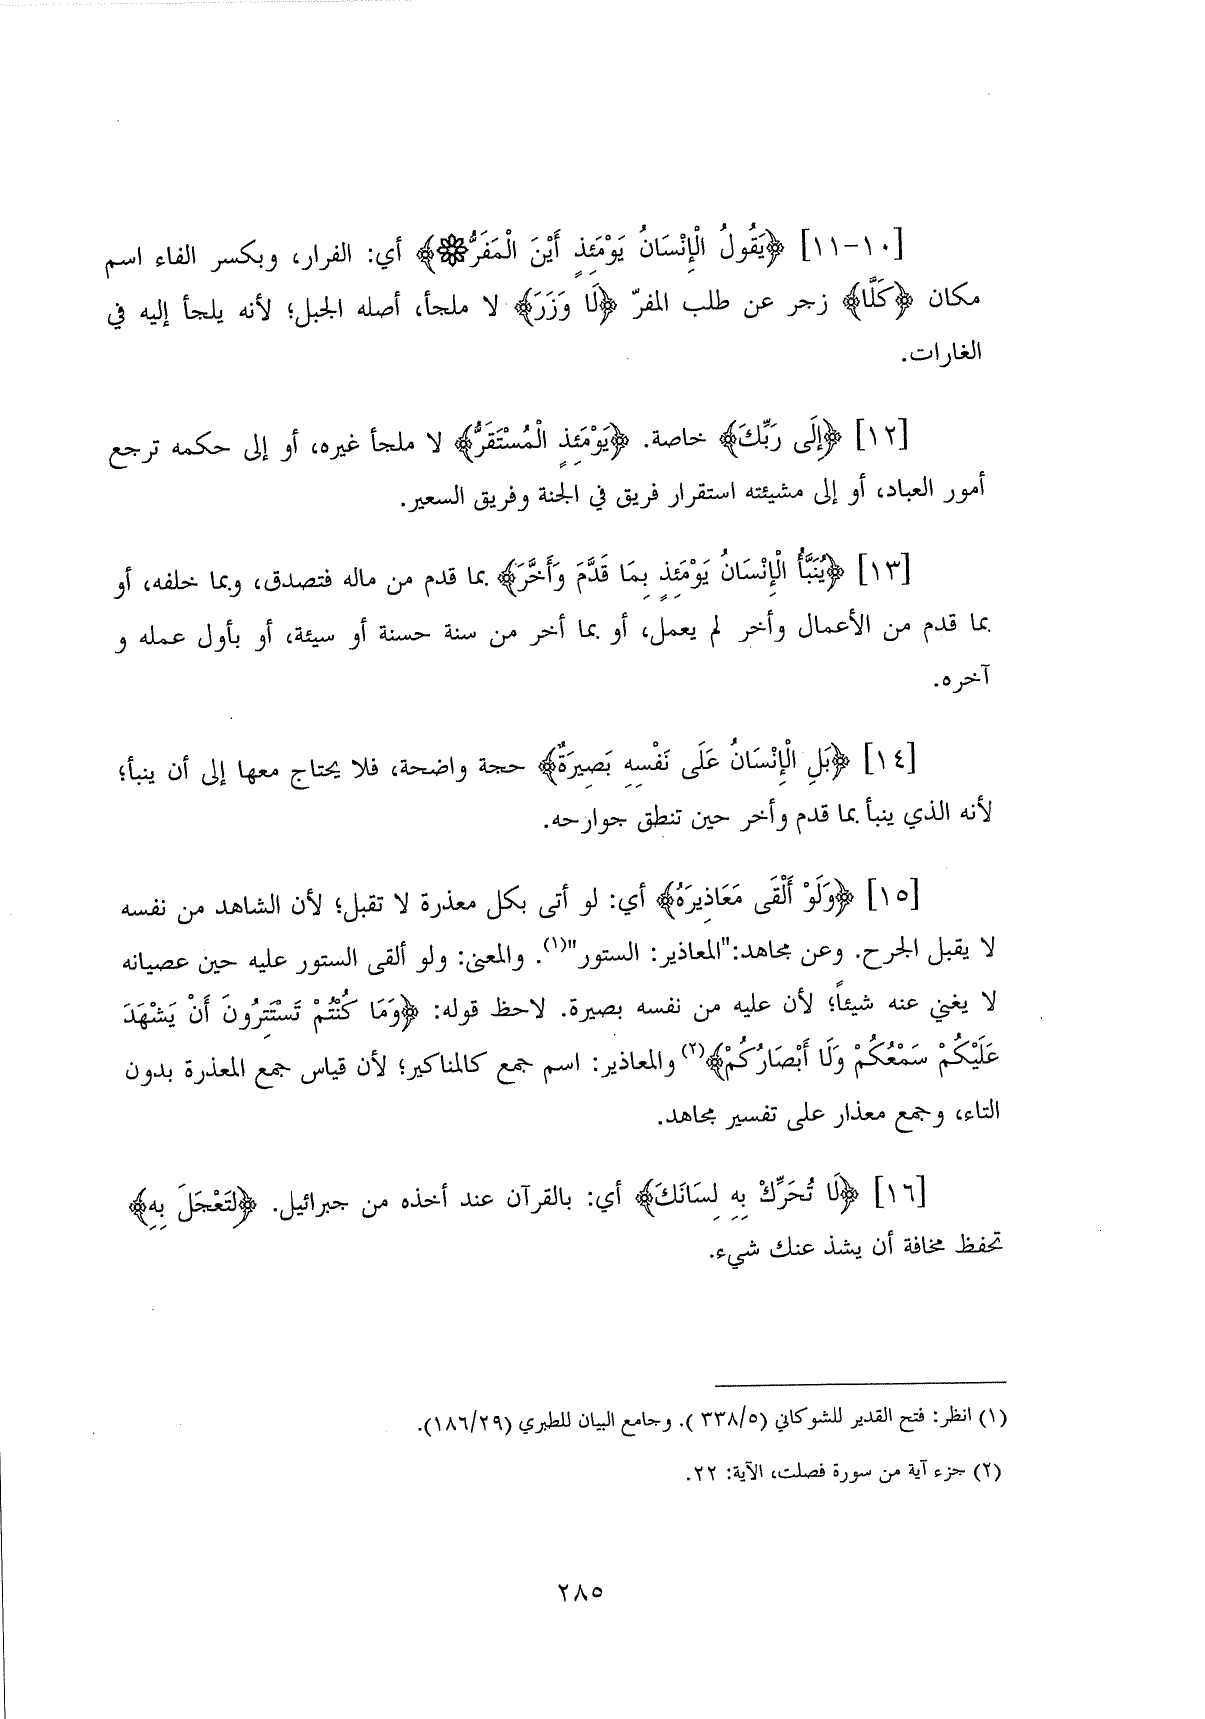 [١٠-١١] ﴿يَقُولُ الْإِنْسَانُ يَوْمَئِذٍ أَيْنَ الْمَفَرُّ۞﴾ أي: الفرار، وبكسر الفاء اسم
مكان ﴿كَلَّا﴾ زجر عن طلب المفرّ ﴿لَا وَزَرَ﴾ لا ملجأ، أصله الجبل؛ لأنه يلجأ إليه في
الغارات.
[١٢] ﴿إِلَى رَبِّكَ﴾ خاصة. ﴿يَوْمَئِذٍ الْمُسْتَقَرُّ﴾ لا ملجأ غيره، أو إلى حكمه ترجع
أمور العباد، أو إلى مشيئته استقرار فريق في الجنة وفريق السعير.
[١٣] ﴿يُنَبَّأُ الْإِنْسَانُ يَوْمَئِذٍ بِمَا قَدَّمَ وَأَخَّرَ﴾ بما قدم من ماله فتصدق، وبما خلفه، أو
بما قدم من الأعمال وأخر لم يعمل، أو بما أخر من سنة حسنة أو سيئة، أو بأول عمله و
آخره.
[١٤] ﴿بَلِ الْإِنْسَانُ عَلَى نَفْسِهِ بَصِيرَةٌ﴾ حجة واضحة، فلا يحتاج معها إلى أن ينبأ؛
لأنه الذي ينبأ بما قدم وأخر حين تنطق جوارحه.
[١٥] ﴿وَلَوْ أَلْقَى مَعَاذِيرَهُ﴾ أي: لو أتى بكل معذرة لا تقبل؛ لأن الشاهد من نفسه
لا يقبل الجرح. وعن مجاهد:"المعاذير: الستور"(١). والمعنى: ولو ألقى الستور عليه حين عصيانه
لا يغني عنه شيئاً؛ لأن عليه من نفسه بصيرة. لاحظ قوله: ﴿وَمَا كُنْتُمْ تَسْتَتِرُونَ أَنْ يَشْهَدَ
عَلَيْكُمْ سَمْعُكُمْ وَلَا أَبْصَارُكُمْ﴾(٢) والمعاذير: اسم جمع كالمناكير؛ لأن قياس جمع المعذرة بدون
التاء، وجمع معذار على تفسير مجاهد.
[١٦] ﴿لَا تُحَرِّكْ بِهِ لِسَانَكَ﴾ أي: بالقرآن عند أخذه من جبرائيل. ﴿لِتَعْجَلَ بِهِ﴾
تحفظ مخافة أن يشذ عنك شيء.
(١) انظر: فتح القدير للشوكاني (٣٣٨/٥ ). وجامع البيان للطبري (١٨٦/٢٩).
(٢) جزء آية من سورة فصلت، الآية: ٢٢.
٢٨٥